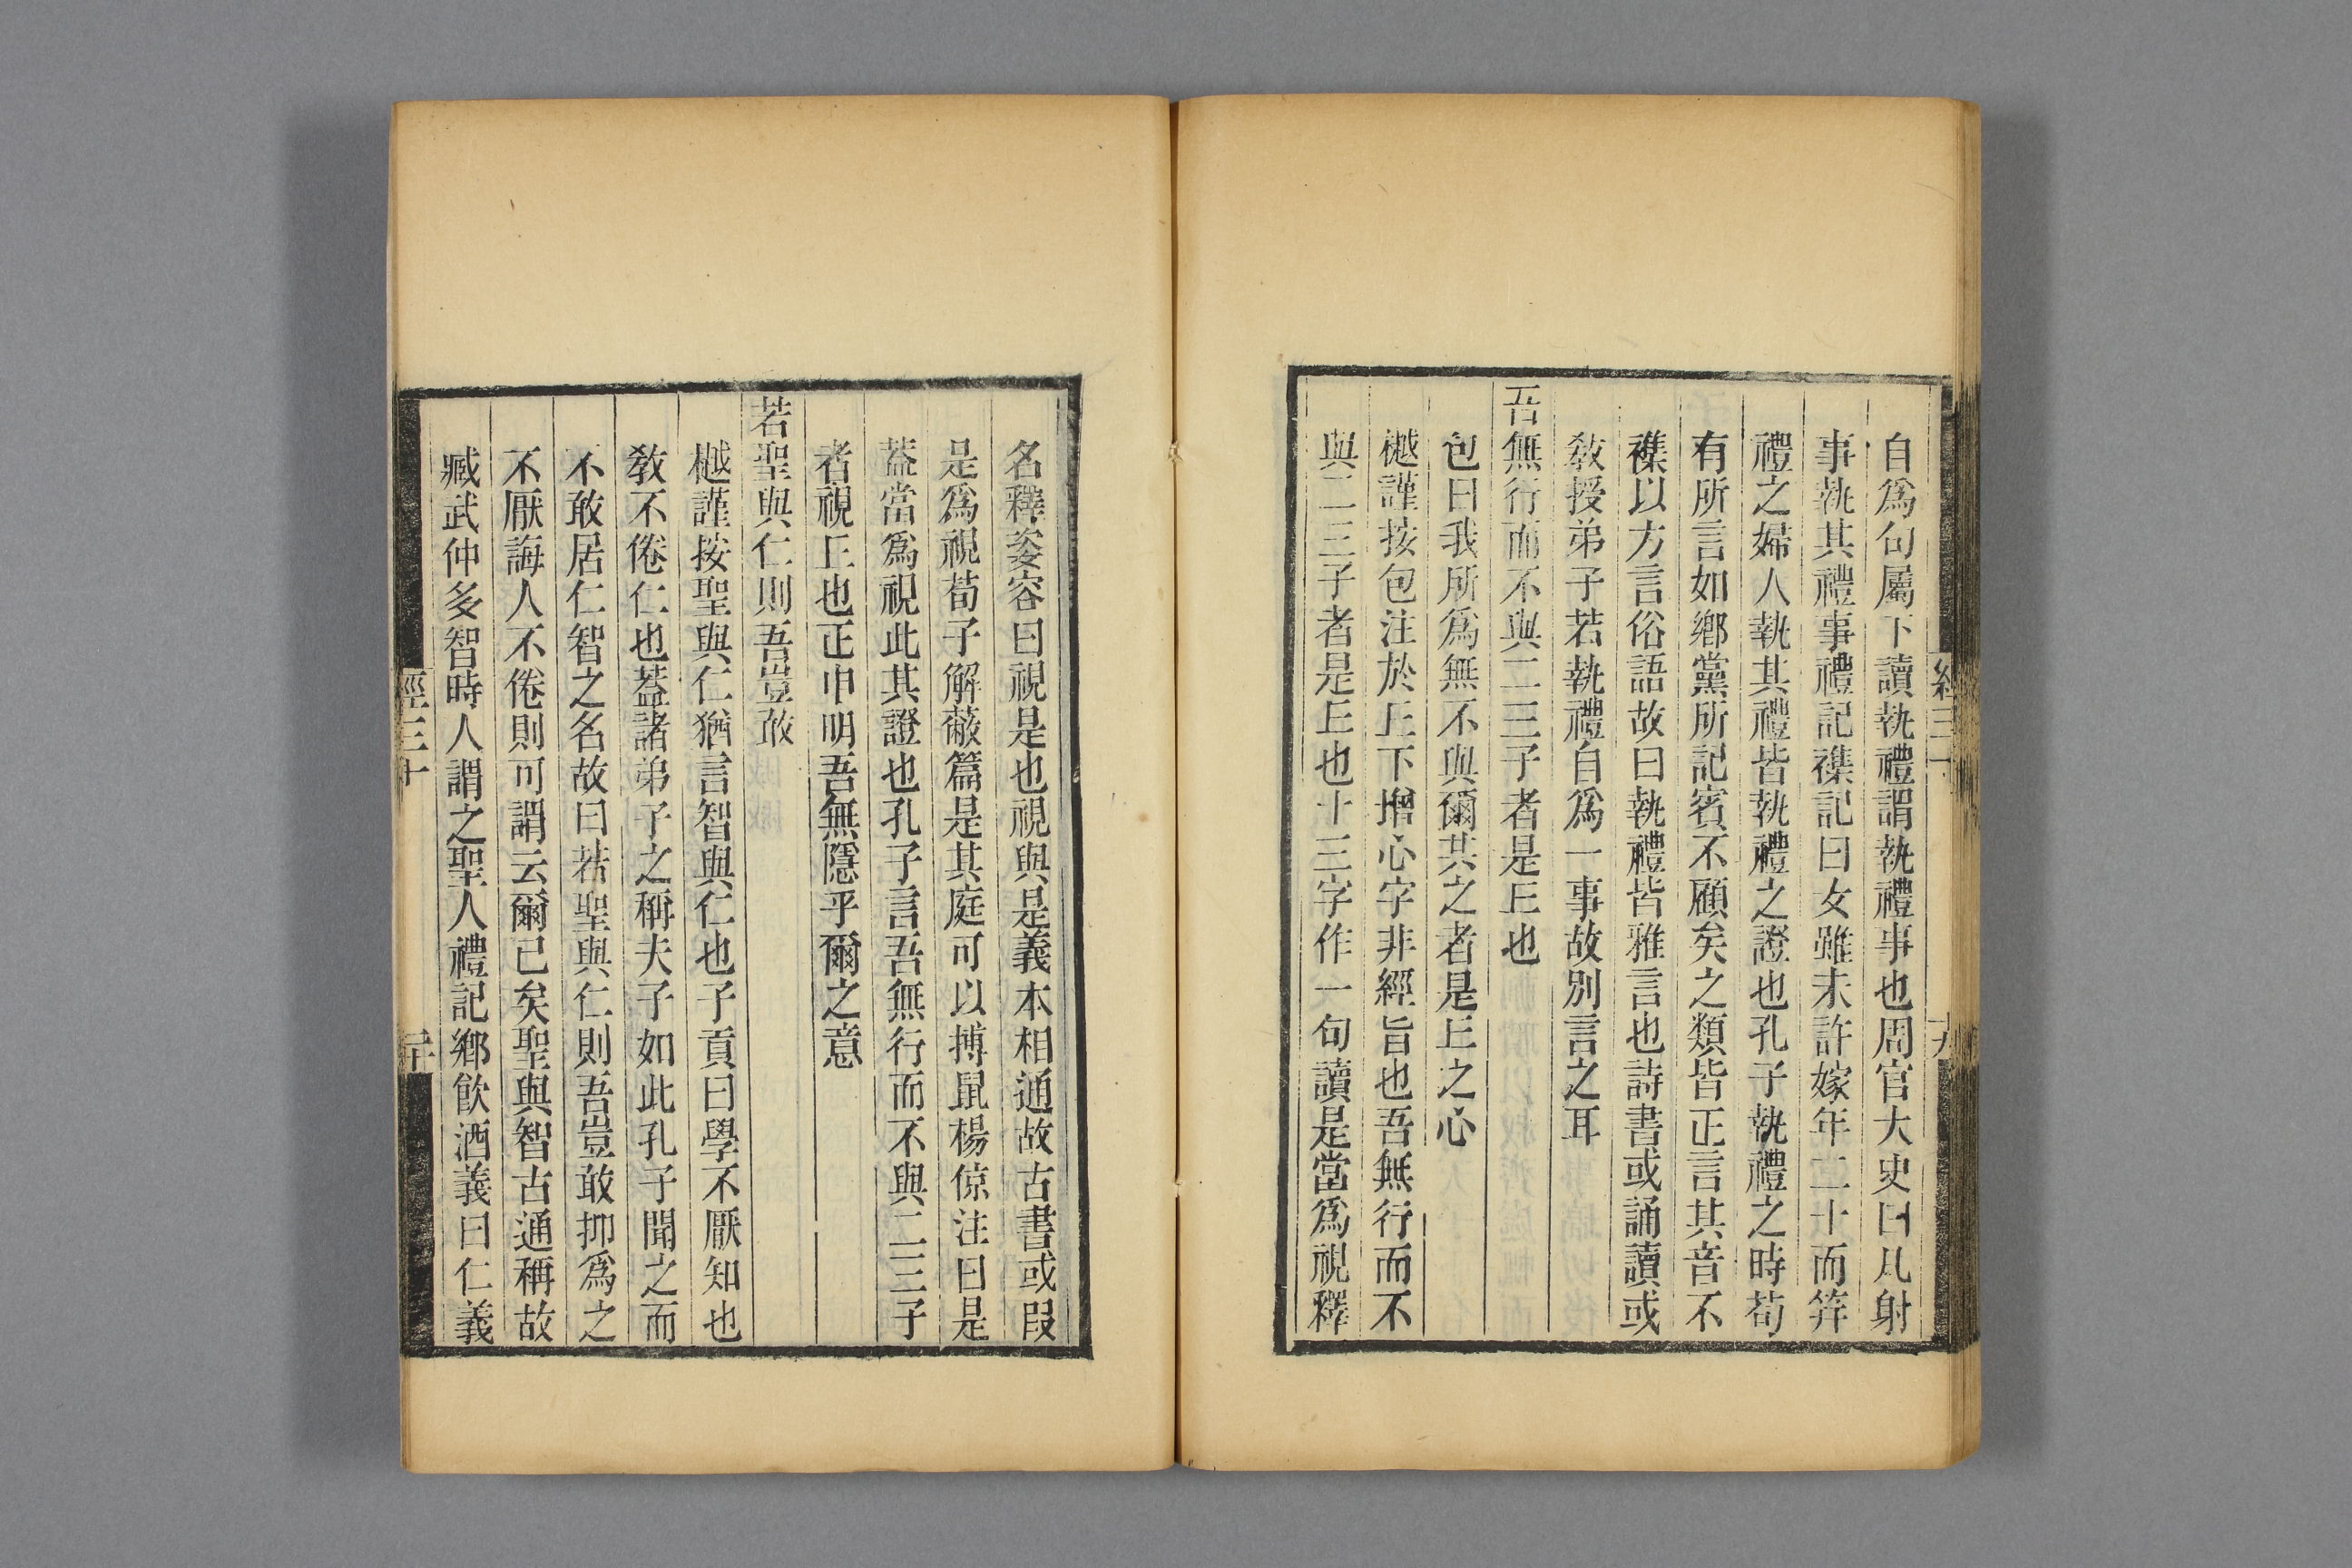 自爲句屬下讀執禮謂執禮事也周官大史曰凡射
事執其禮事禮記襍記曰女雖未許嫁年二十而笄
禮之婦人執其禮皆執禮之證也孔子執禮之時苟
有所言如鄉黨所記賓不顧矣之類皆正言其音不
襍以方言俗語故曰執禮皆雅言也詩書或誦讀或
敎授弟子若執禮自爲一事故別言之耳
吾無行而不與二三子者是丘也
包曰我所爲無不與爾共之者是丘之心
樾謹按包注於丘下增心字非經旨也吾無行而不
與二三子者是丘也十三字作一句讀是當爲視釋
名釋姿容曰視是也視與是義本相通故古書或叚
是爲視荀子解蔽篇是其庭可以搏鼠楊倞注曰是
葢當爲視此其證也孔子言吾無行而不與二三子
者視丘也正申明吾無隱乎爾之意
若聖與仁則吾豈敢
樾謹按聖與仁猶言智與仁也子貢曰學不厭知也
敎不倦仁也葢諸弟子之稱夫子如此孔子聞之而
不敢居仁智之名故曰若聖與仁則吾豈敢抑爲之
不厭誨人不倦則可謂云爾已矣聖與智古通稱故
臧武仲多智時人謂之聖人禮記鄉飮酒義曰仁義
經三十
二十